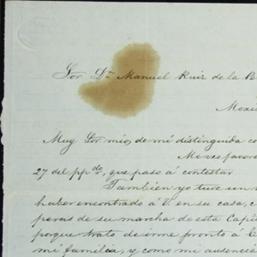 Sor Dn Manuel Ruiz de la B
Mexi
Muy Sor mio, de mi distinguida co
Me es favore
27 del ppdo, que paso á contestar
Tambien yo tuve un
haber encontrado á V. en su casa, c
peras de su marcha de esta Capi
porque trato de irme pronto á
mi familia, y como mi ausenci